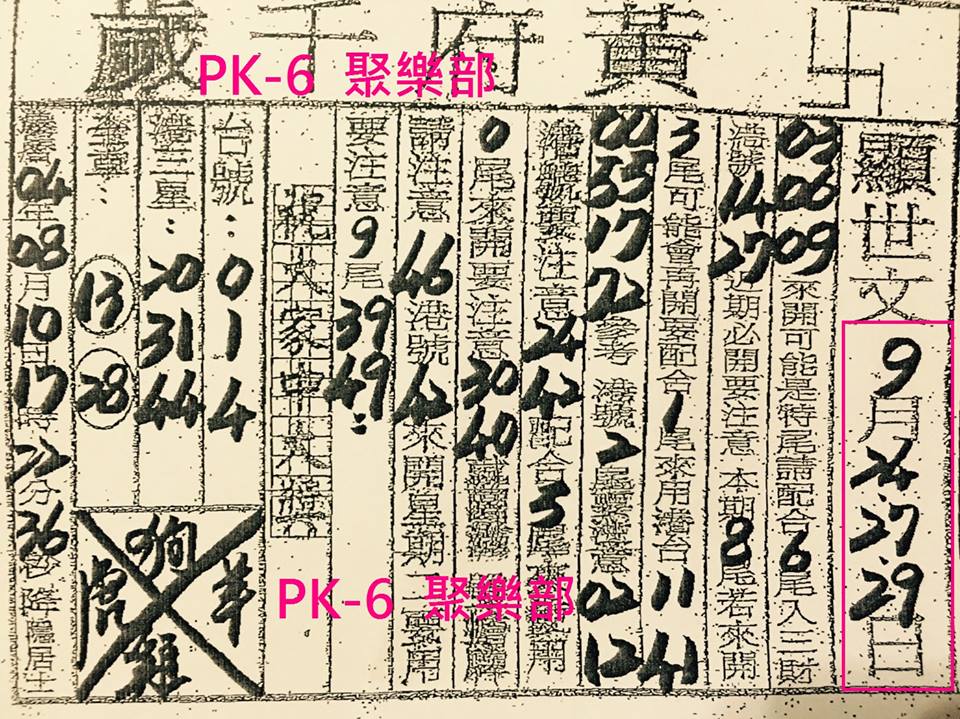 黃府千歲
PK-6 聚樂部
顯世文 9月24.27.29日
03 06 09來開可能是特尾請配合6尾入三財
港號14 27近期必開要注意 本期8尾若來開
3尾可能會再開要配合1尾來用港台 11 41
00 55 17 22參考 港號2尾要注意 02 12
注意24 42配合5尾
0尾來開要注意30 40
請注意 46港號42來開星期二要用
要注意9尾39 49:
祝大家中
台號: 0 1 4
港三星: 20 31 44
13 28
農曆04年08月10日17時22分36秒 降隱居士
狗
虎 羊
雞
PK-6 聚樂部